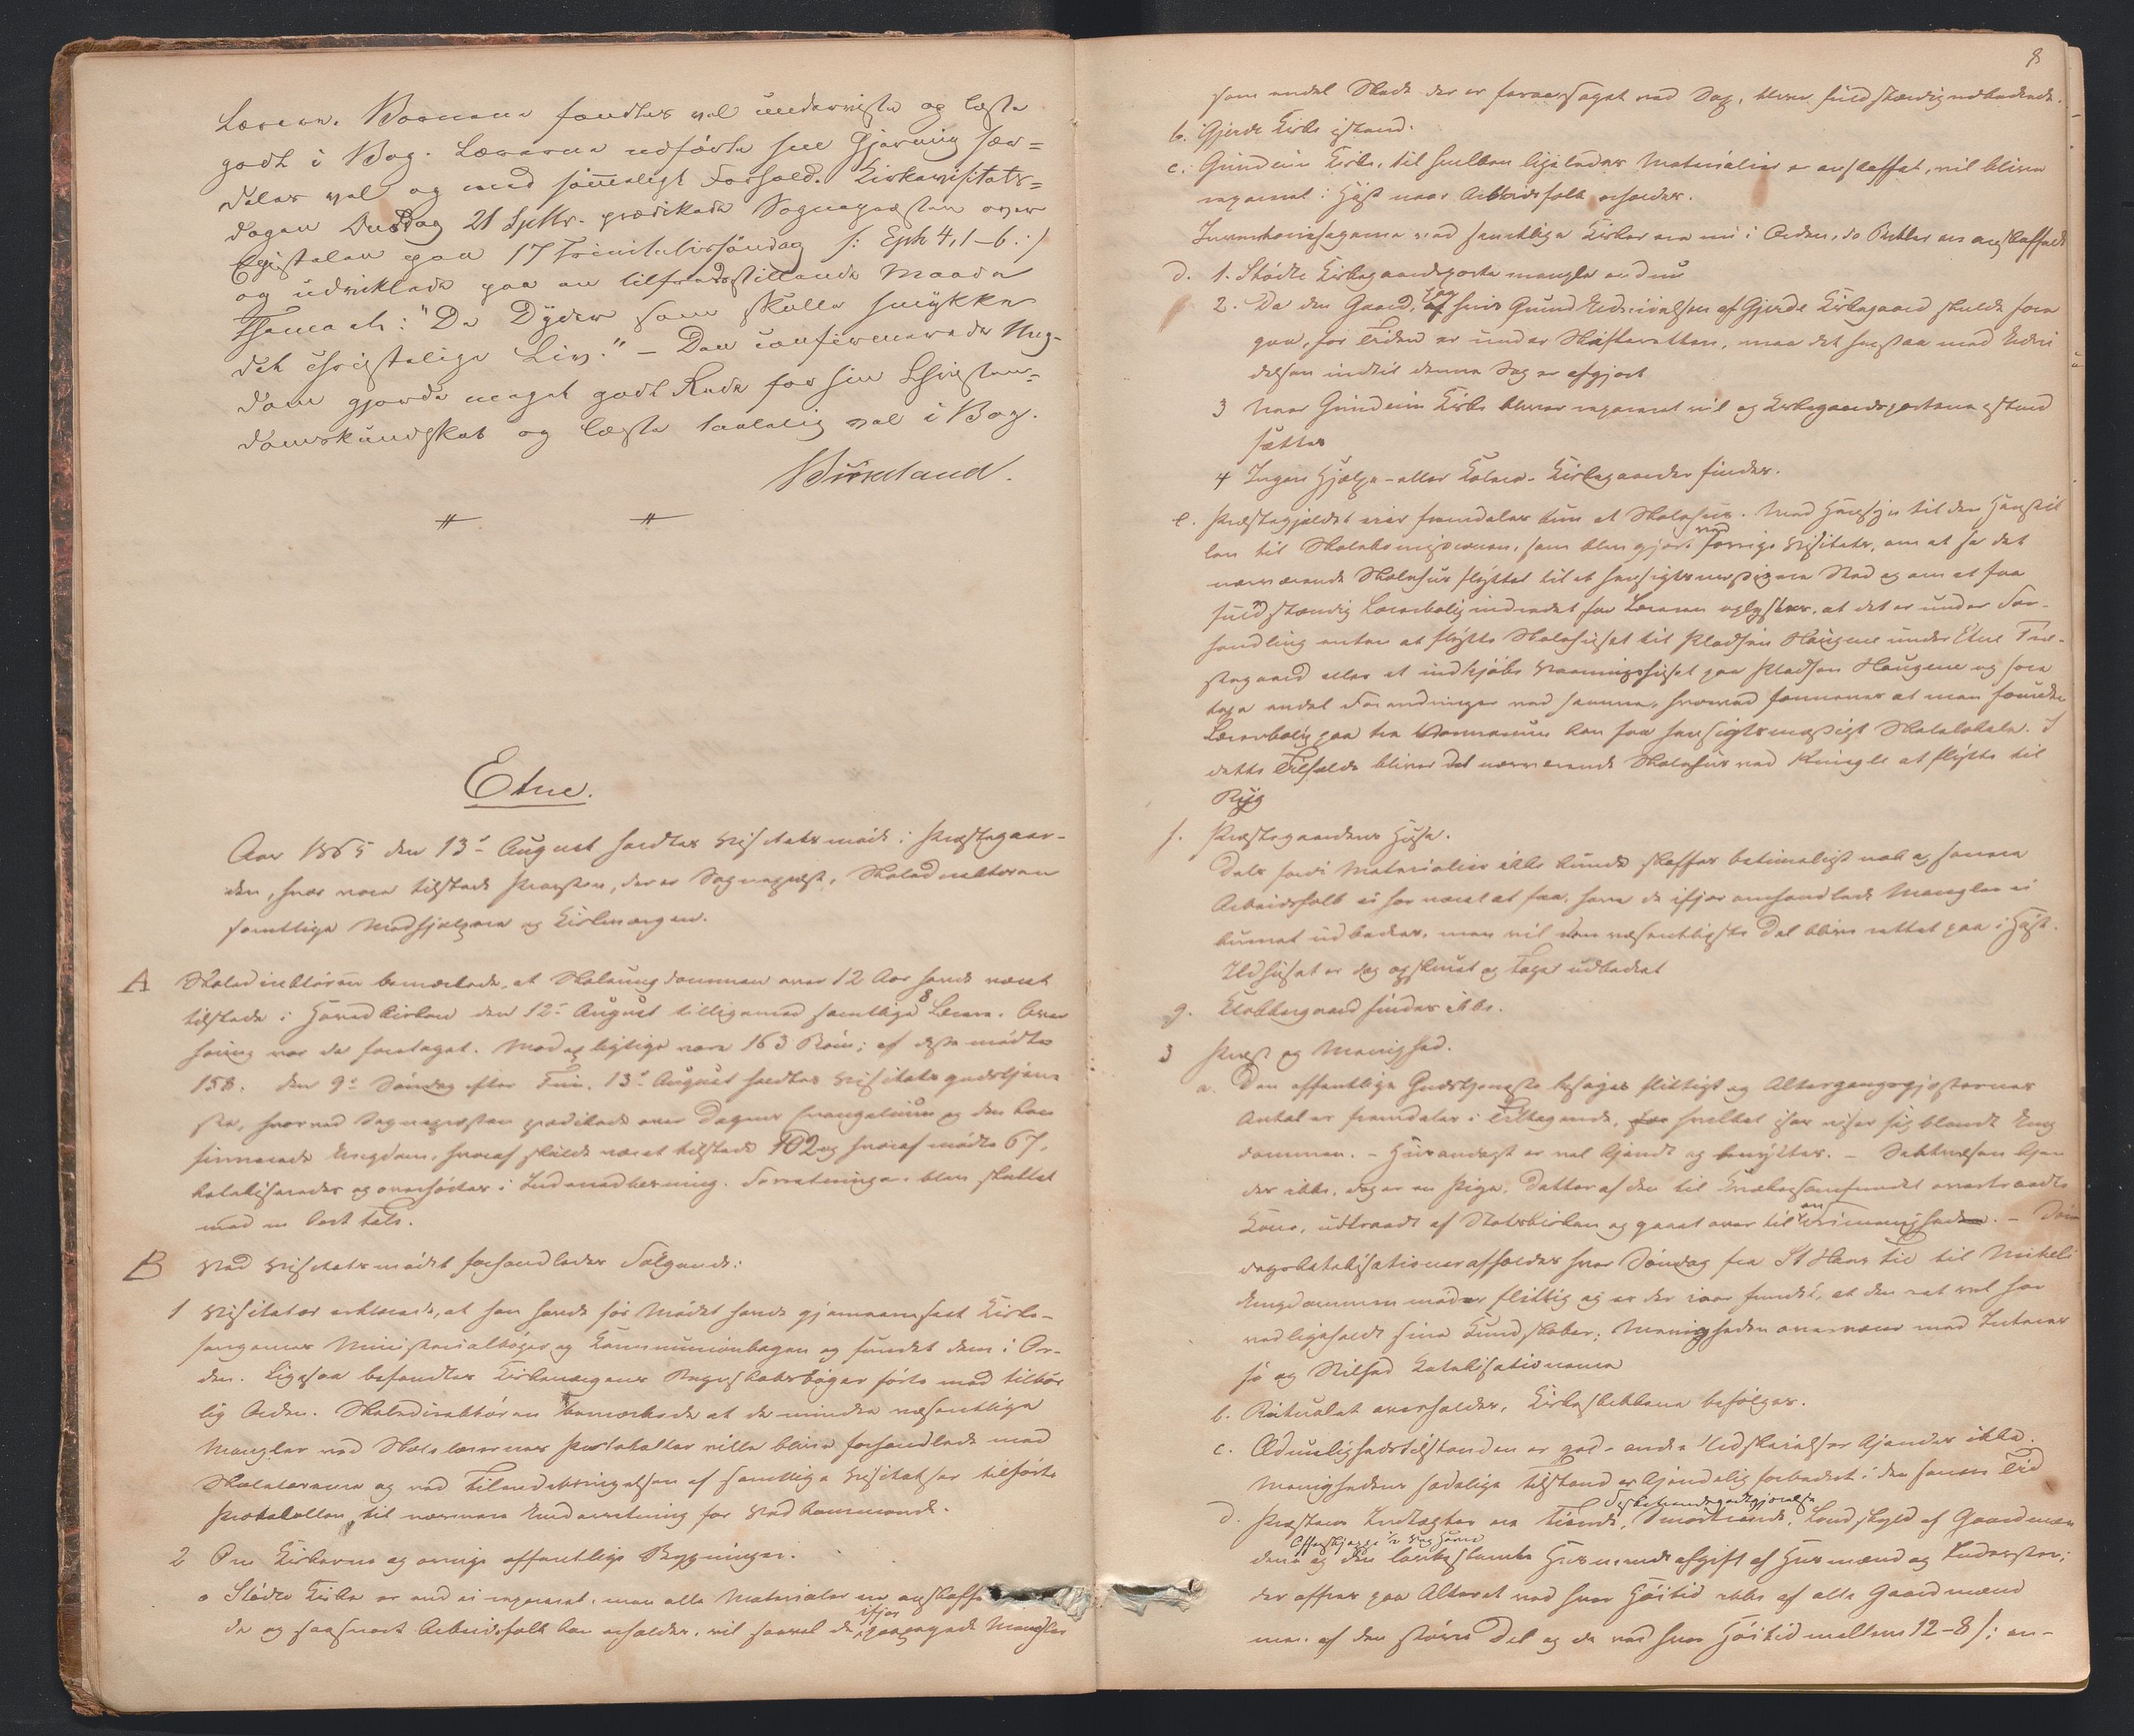 Lærere. Børnene fandtes vel underviste og læste
godt i Bog. Lærerne udførte sin Gjerning sær=
deles vel og med sømeligt Forhold. Kirkevisitats=
dagen Onsdag 21 Septbr. prædikede Sognepræsten over
Epistelen paa 17 Trinitatissøndag /: Eph 4,1-6. :/
og udviklede paa en tilfredsstillende Maade
Themaet: "De Dyder som skulle smykke
det christelige Liv." – Den confirmerede Ung-
dom gjorde meget godt Rede for sin Christen=
domskundskab og læste taalelig vel i Bog.
Birkeland.
Etne.
Aar 1865 den 13de August holdtes Visitatsmøde i Præstegaar-
den, hvor vare tilstede Provsten, der er Sognepræst, Skoledirektøren
samtlige Medhjælpere og Kirkeværgen.
A Skoledirektøren bemærkede, at Skoleungdommen over 12 Aar havde været
tilstede i Hovedkirken den 12te August tilligemed samtlige 8 Lærere. Over
høring var da foretaget. Mødepligtige vare 163 Børn; af disse mødte
158. Den 9de Søndag efter Trin. 13de August holdtes Visitatsgudstjene
ste, hvorved Sognepræsten prædikede over Dagens Evangelium og den kon
firmerede Ungdom, hvoraf skulde været tilstede 102 og hvoraf mødte 67,
katekiseredes og overhørtes i Indenadlæsning. Forretningen blev sluttet
med en kort Tale.
B Ved Visitatsmødet forhandledes Følgende:
1 Visitator erklærede, at han havde før Mødet havde gjennemseet Kirke-
sognenes Ministerialbøger og Kommunionbogen og fundet dem i Or-
den. Ligesaa befandtes Kirkeværgens Regnskabsbøger førte med tilbør
lig Orden. Skoledirektøren bemærkede at de mindre væsentlige
Mangler ved Skolelærernes Protokoller ville blive forhandlede med
Skolelærerne og ved Tilendebringelsen af samtlige Visitatser tilført
Protokollen til nærmere Underretning for Vedkommende.
2 Om Kirkerne og øvrige offentlige Bygninger.
a Stødle Kirke er end ei repareret, men alle Materialer ere anskaffe
de og saasnart Arbeidsfolk kan erholdes, vil saavel de ifjor paapegede Mangler
8
som endel Skade der er foraarsaget ved Sag, blive fuldstændig udbedrede.
b. Gjerde Kirke istand.
c. Grindeim Kirke, til hvilken ligeledes Materialier er anskaffet, vil blive
repareret i Høst naar Arbeidsfolk erholdes.
Inventariesagerne ved samtlige Kirker ere nu i Orden, da Pulter ere anskaffede
d. 1. Stødle Kirkegaardsporte mangler endnu
2. Da den Gaard, paa hvis Grund Udvidelsen af Gjerde Kirkegaard skulde fore
gaa, for Tiden er under Skifteretten, maa det henstaa med Udvi
delsen indtil denne Sag er afgjort
3 Naar Grindeim Kirke bliver repareret vil og Kirkegaardsportene istand
sættes
4 Ingen Hjælpe- eller Kolera-Kirkegaarder findes.
e. Præstegjeldet eier fremdeles kun et Skolehus. Med Hensyn til den Henstil
len til Skolekommissionen, som blev gjort ved forrige Visitats, om at faa det
nærværende Skolehus flyttet til et hensigtsmæssigere Sted og om at faa
fuldstændig Lærerbolig indredet for Læreren oplystes, at det er under For-
handling enten at flytte Skolehuset til Pladsen Haugene under Etne Præ-
stegaard eller at indkjøbe Vaaningshuset paa Pladsen Haugene og fore
tage endel Forandringer ved samme, hvorved formenes at man foruden
Lærerbolig paa tre Værelser kan faa hensigtsmæssigt Skolelokale. I
dette Tilfælde bliver det nærværende Skolehus ved at flytte til
Ryg
f. Præstegaardens Huse.
Dels fordi Materialier ikke kunde skaffes betimeligt nok og senere
Arbeidsfolk ei har været at faa, have de ifjor omhandlede Mangler ei
kunnet udbedres, men vil den væsentligste Del blive rettet paa i Høst.
Ildhuset er dog opskuret og Taget udbedret
g. Klokkergaard findes ikke.
3 Præst og Menighed.
a. Den offentlige Gudstjeneste besøges flittigt og Altergangsgjesternes
Antal er fremdeles i Tiltagende, hvilket især viser sig blandt Ung
dommen. – Husandagt er vel kjendt og benyttes. – Sektvæsen kjen
des ikke, dog er en Pige, Datter af den til Kvækersamfundet overtraadte
Kone, udtraadt af Statskirken og gaaet over til en Frimenighed. – Søn
dagskatekisationer afholdes hver Søndag fra St Hans Tid til Mikeli
Ungdommen møder flittig og er det iaar fundet, at den ret vel har
vedligeholdt sine Kundskaber; Menigheden overværer med Interes
se og Stilhed Katekisationerne
b. Ritualet overholdes, Kirkeskikkene befølges.
c. Ædruelighedstilstanden er god – andre Udskeielser kjendes ikke.
Menighedens sædelige Tilstand er kjendelig forbedret i den senere Tid
d. Præstens Indtægter ere Tiende, Smørtiende, Fisketiendegodtgjørelse, Landskyld af Gaardmæn
dene og den Husmandsafgift af Husmænd og Inderster;
der offres paa Alteret ved hver Høitid ikke af alle Gaardmænd
men af den større Del og da ved hver Høitid mellem 12-8 /: en-